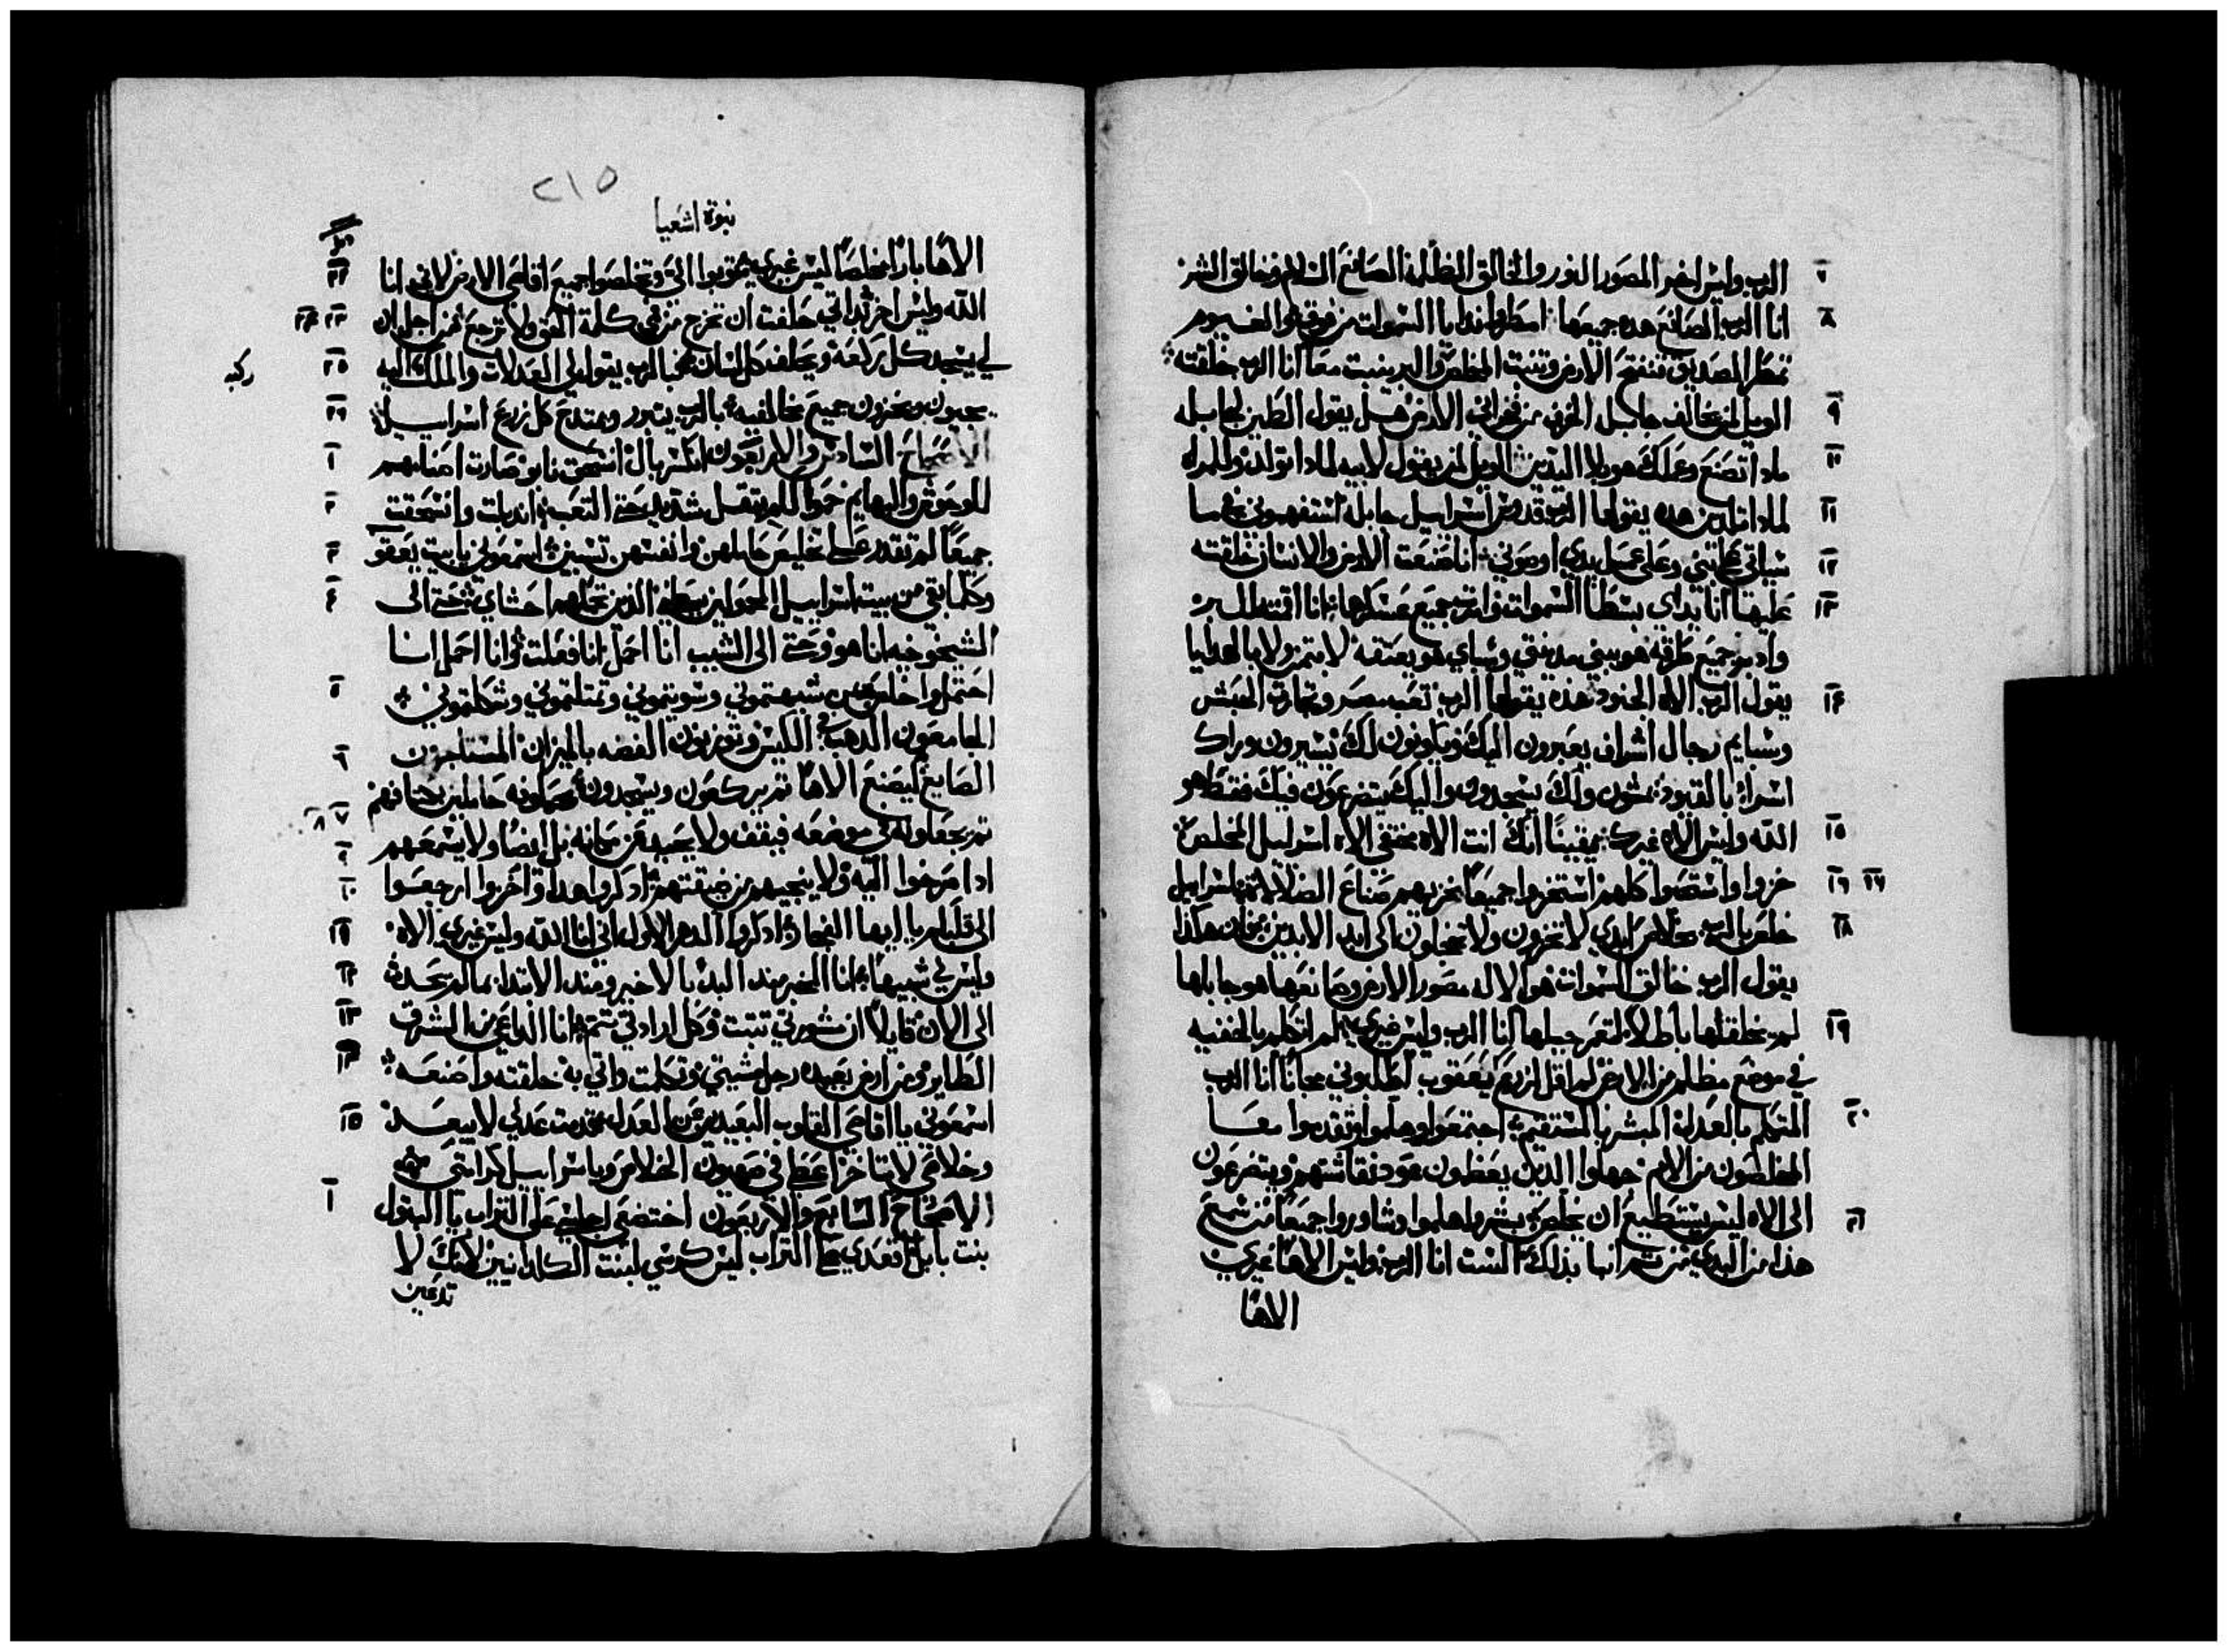 ٧ الرب وليس اخر المصور النور والخالق الظلمة الصانع السلام وخالق الشر
٨ انا الرب الصانع هده جميعها امطروا ندا يا السموات من فوق والغيوم
تمطر الصديق تنفتح الارض وتنبت المخلص والبر ينبت معا انا الرب خلقته
٩ الويل لمن يخالف جابله الخزف من فخراني الارض هل يقول الطين لجابله
١٠ مادا تصنع وعملك هو بلا اليدين الويل لمن يقول لابيه لمادا تولد وللمراه
١١ لمادا تلدين هده يقولها الرب قدوس اسرايل جابله استفهموني عما
١٢ سياتي على بني وعلى عمل يدي اوصوني انا صنعت الارض والانسان خلقته
١٣ عليها انا يداي بسطتا السموات وامرت جميع عسكرها انا اقمته للبر
وادبر جميع طرقه هو يبني مدينتي وسباي هو يعتقه لا بثمن ولا بالهدايا
١٤ يقول الرب الاه الجنود هده يقولها الرب تعب مصر وتجارة الحبش
وسبايم رجال اشراف يعبرون اليك ويكونون لك يسيرون وراك
اسراء بالقيود يمشون ولك يسجدون واليك يتضرعون فيك فقط هو
١٥ الله وليس الاه غيرك يقيناً انك انت الاه مختفي الاه اسرايل المخلص
١٦ ١٧ خزوا واستحيوا كلهم استخزوا جميعاً بخزيهم صناع الضلالات اسرايل
١٨ خلص بالرب خلاص ابدي لا تخزون ولا تخجلون الى ابد الابدين فان هكدا
يقول الرب خالق السموات هو الاله مصور الارض وصانعها هو جابلها
١٩ لم يخلقها باطلاً لتعمر جبلها انا الرب وليس غيري لم اتكلم بالخفيه
في موضع مظلم من الارض لم اقل لزرع يعقوب اطلبوني مجاناً انا الرب
٢٠ المتكلم بالعدل المبشر بالمستقيم اجتمعوا وهلموا وتقدموا معا
المخلصون من الامم جهلوا الدين يعظمون عود نقاشتهم ويتضرعون
٢١ الى الاه ليس يستطيع ان يخلص بشروا هلموا وشاوروا جميعاً من سمع
هدا من البدي من ثم انبا بذلك الست انا الرب وليس الاهاً غيري
الاهاً
٢١٥
نبوة اشعيا
٢٢ الاهاً باراً مخلصاً ليس غيري توبوا الي وتخلصوا جميع اقاصي الارض لاني انا
٢٣ ٢٤ الله وليس اخر بداتي حلفت ان تخرج من فمي كلمة الحق ولا ترجع من اجل ان
٢٥ لي يسجد كل ركبة ويحلف كل لسان بالرب يقول لي العدلات والملك اليه
ركبه
٢٦ يجيون ويخزون جميع مخالفيه بالرب يتبرر ويمتدح كل زرع اسراييل
١ الاصحاح السادس والاربعون انكسر بال انسحق نابو صارت اصنامهم
٢ للوحوش والبهايم حمولكم بتقل شديد حتى التعب اندابت وانسحقت
٣ جميعاً لم تقدر على تخليص حاملهن وانفسهن تسبين اسمعوني يا بيت يعقوب
٤ وكلما بقي من بيت اسراييل المحمولين الذين تحملهم احشاي حتى الى
الشيخوخيه انا هو وحتى الى الشيب انا احمل انا فعلت وانا احمل انا
٥ احتمل واخلص بمن شبهتموني وسويتموني ومثلتموني وشكلتموني
٦ الجامعون الدهب من الكيس وتوزنون الفضه بالميزان المستاجرون
الصايغ ليصنع الاهاً ثم يركعون ويسجدون له
٧ ٨ ثم يجعلوله في موضعه فيقف ولا يحيد عن مكانه بل ايضاً ولا يسمعهم
٩ ادا صرخوا اليه ولا ينجيهم من ضيقتهم ادكروا هدا واخزوا ارجعوا
١٠ الى قلبكم يا ايها الفجار ادكروا الدهر الاول اني انا الله وليس غيري الاه
١١ وليس لي شبيهاً انا المخبر مند البدء بالاخير ومند الابتدا بما لم يحدث
١٢ الى الان قايلاً ان شورتي تثبت وكل ارادتي تتم انا الداعي من المشرق
١٣ الطاير ومن ارض بعيده رجل مشيتي وتكلمت واتي به خلقته واصنعه
١٥ اسمعوني يا اقاصي القلوب البعيدين عن العدل قدمت عدلي لا يبعد
وخلاصي لا يتاخر اعطي في صهيون الخلاص وباسراييل كرامتي
١ الاصحاح السابع والاربعون اختضعي اجلسي على التراب يا البتول
بنت بابل اقعدي على التراب ليس كرسي لبنت الكلدانيين لانك لا
تدعين